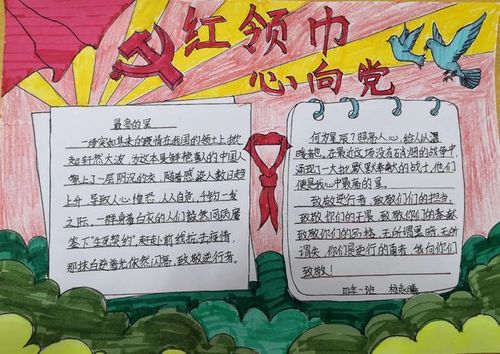 红领巾
心向党
最亮的星
一场突如其来的疫情在我国的领土上掀
起轩然大波,为这本是鲜艳喜人的中国人
蒙上了一层阴沉的灰,随着感染人数日趋
上升,导致人心惶恐,人人自危,千钧一发
之际,一群身着白衣的人们毅然同病魔
签下"生死契约",赶赴前线抗击疫情,
那抹白逆着光依然闪亮,致敬逆行者,
何为星辰?照亮人心,给人以温
暖者也,在最近这场没有硝烟的战争中
涌现了一大批默默奉献的战士,他们
便是我心中最亮的星。
致敬逆行者,致敬你们的担当
致敬你们的无畏,致敬你们的奉献
致敬你们的品格,无所谓黑暗,无所
谓失,你们是逆行的勇者,我向你们
致敬!
四年一班